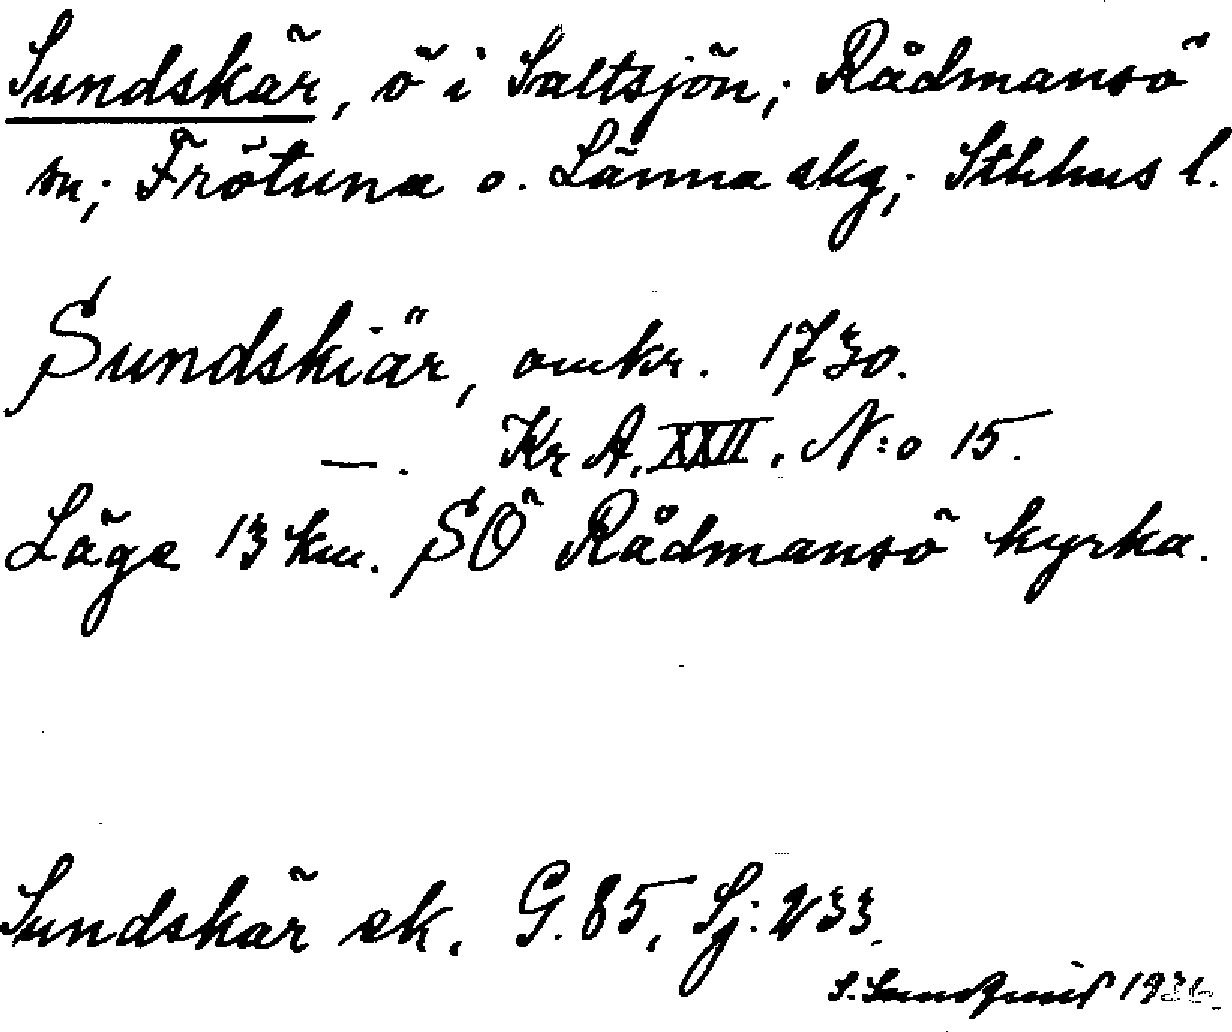 Sundskär, ö i Saltsjön; Rådmansö
sn; Frötuna o. Länna skg; Sthlms l.
Sundskiär, omkr. 1730.
—. Kr A. XXII. N:o 15.
Läge 13 km. SÖ Rådmansö kyrka.
Sundskär ek. G. 85, Sj: 233.
S. Sundquist